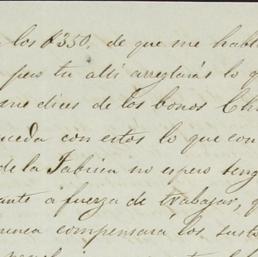 los $350, de que me habl
pero tu alli arreglarás lo q
me dices de los bonos Ch
uceda con estos lo que con
de la Fabrica no espero teng
ante a fuerza de trabajar, q
nunca compensará los sust